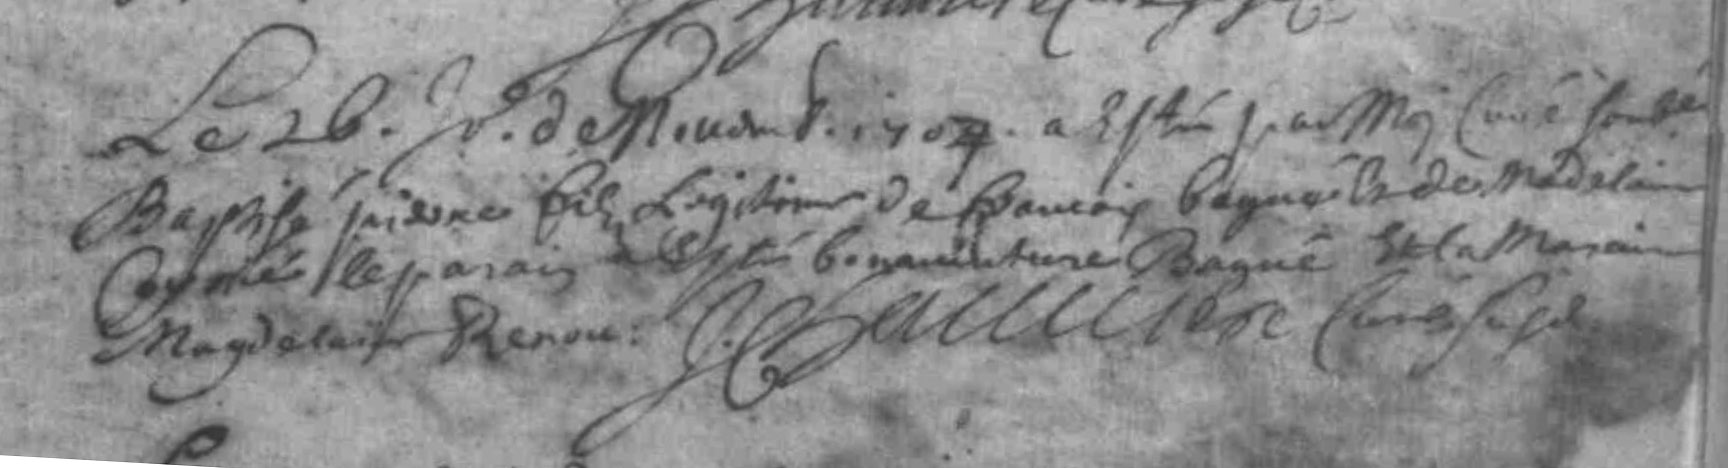 Le 26. Jo. de Novemb. 1704. a Esté par Moy Curé soubsé
Baptisé pierre fils Legitime de francois bagué Et de Madelaine
le parain a Esté bonnauenture Bagué Et la Maraine
Magdelaine Renou: Curé susd